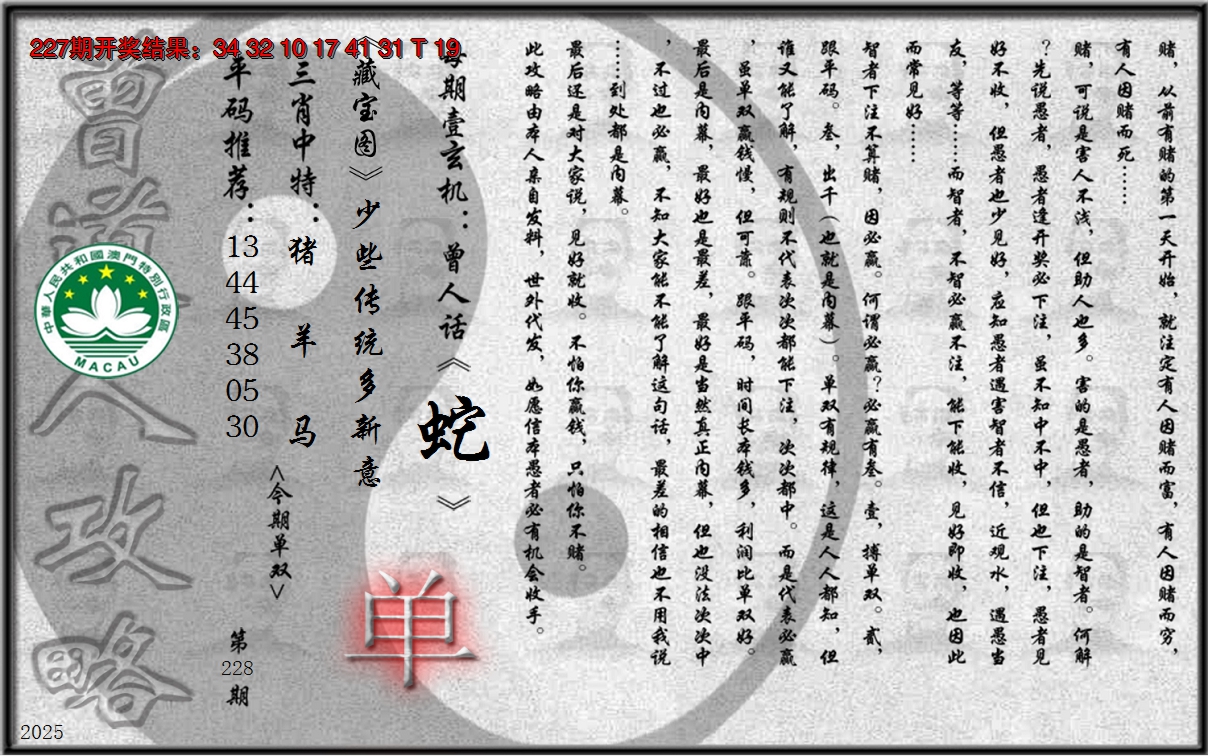 227期开奖结果：34 32 10 17 41 31 T 19
赌，从前有赌的第一天开始，就注定有人因赌而富，有人因赌而穷，
有人因赌而死……
赌，可说是害人不浅，但助人也多。害的是愚者，助的是智者。何解
？先说愚者，愚者逢开奖必下注，虽不知中不中，但也下注，愚者见
好不收，但愚者也少见好，应知愚者遇害智者不信，近观水，遇愚当
友，等等……而智者，不智必赢不注，能下能收，见好即收，也因此
而常见好……
智者下注不算赌，因必赢。何谓必赢？必赢有叁。壹，搏单双。贰，
跟平码。叁，出千（也就是内幕）。单双有规律，这是人人都知，但
谁又能了解，有规则不代表次次都能下注，次次都中。而是代表必赢
，虽单双赢钱慢，但可靠。跟平码，时间长本钱多，利润比单双好。
最后是内幕，最好也是最差，最好是当然真正内幕，但也没法次次中
，不过也必赢，不知大家能不能了解这句话，最差的相信也不用我说
……到处都是内幕。
最后还是对大家说，见好就收。不怕你赢钱，只怕你不赌。
此攻略由本人亲自发料，世外代发，如愿信本愚者必有机会收手。
每期壹玄机：曾人话《蛇》
《藏宝图》少些传统多新意
单
三肖中特：猪 羊 马
<今期单双>
平码推荐：
13
44
45
38
05
30
第
228
期
曾道人攻略
中華人民共和國澳門特別行政區
MACAU
2025